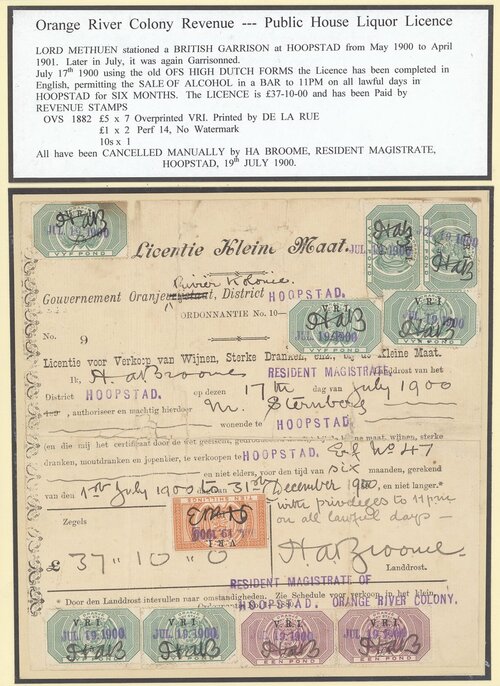 Orange River Colony Revenue --- Public House Liquor Licence
LORD METHUEN stationed a BRITISH GARRISON at HOOPSTAD from May 1900 to April
1901. Later in July, it was again Garrisonned.
July 17th 1900 using the old OFS HIGH DUTCH FORMS the Licence has been completed in
English, permitting the SALE OF ALCOHOL in a BAR to 11PM on all lawful days in
HOOPSTAD for SIX MONTHS. The LICENCE is £37-10-00 and has been Paid by
REVENUE STAMPS
OVS 1882 £5 x 7 Overprinted VRI. Printed by DE LA RUE
£1 x 2 Perf 14, No Watermark
10s x 1
All have been CANCELLED MANUALLY by HA BROOME, RESIDENT MAGISTRATE,
HOOPSTAD, 19th JULY 1900.
V.R.I.
JUL 19.1900
VYF POND
JUL 19.1900
Licentie Kleine Maat.
Rivier Kolonie
Gouvernement Oranje, District HOOPSTAD.
ORDONNANTIE No. 10
V.R.I.
JUL 19.1900
VYF POND
JUL 19.1900
VYF POND
No. 9
Licentie voor Verkoop van Wijnen, Sterke Dranken, enz., bij de Kleine Maat.
RESIDENT MAGISTRATE,
Ik, H. A. Broome Landdrost van het
District HOOPSTAD. op dezen 17th dag van July 1900
authoriseer en machtig hierdoor M. Sternberg
wonende te HOOPSTAD.
(en die mij het certificaat door de wet geëischt, kleine maat, wijnen, sterke
dranken, moutdranken en jopenbier, te verkoopen te HOOPSTAD. Erf No 47
en niet elders, voor den tijd van six maanden, gerekend
van den 1st July 1900 to 31st December 1900, en niet langer.*
with privileges to 11 pm
on all lawful days
Zegels
TIEN SHILLINGS
JUL 19.1900
V.R.I.
£ 37 " 10 " 0
H. A. Broome
Landdrost.
RESIDENT MAGISTRATE OF
* Door den Landdrost intevullen naar omstandigheden. Zie Schedule voor verkoop in het klein,
HOOPSTAD. ORANGE RIVER COLONY.
V.R.I.
JUL 19.1900
VYF POND
V.R.I.
JUL 19.1900
VYF POND
V.R.I.
JUL 19.1900
EEN POND
V.R.I.
JUL 19.1900
EEN POND